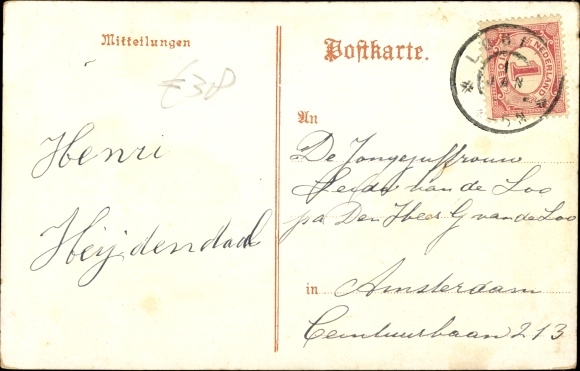 Mitteilungen
Postkarte.
€38
NEDERLAND
1
CENT
LOBI
An
Henri
Heijdendaal
De Jongejuffrouw
van de Loo
pa Den Heer G van de Loo
in Amsterdam
Ceintuurbaan 213